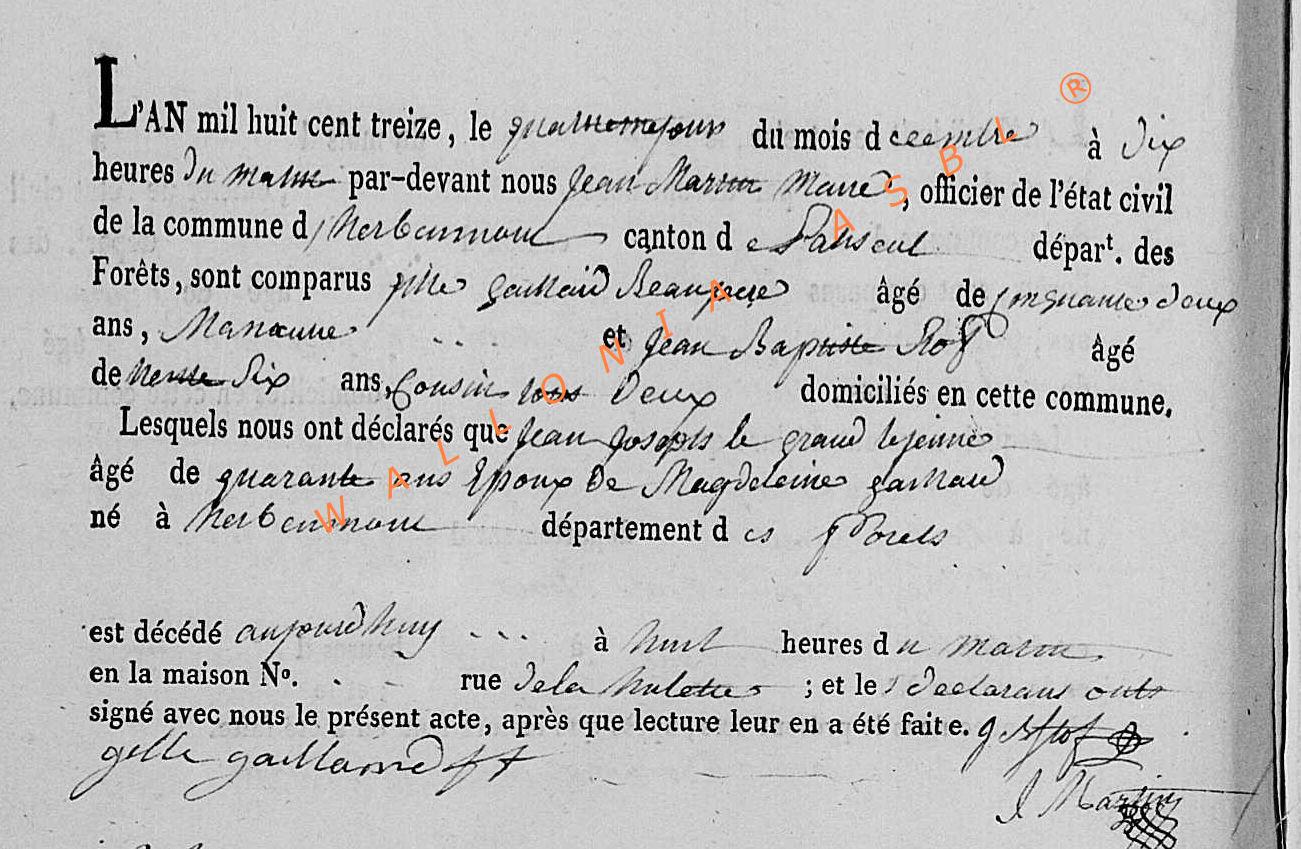 L'AN mil huit cent treize, le quatriemejour du mois d ecembre à dix
heures du matin par-devant nous Jean Martin Maire, officier de l'état civil
de la commune d'herbeumont canton de Paliseul départ. des
Forêts, sont comparus gille gaillard Beaupere âgé de cinquante deux
ans, et Jean Baptiste Stof âgé
de trente Six ans, Cousin tous deux domiciliés en cette commune.
Lesquels nous ont déclarés que Jean Joseph le grand lejeune
âgé de quarante ans Epoux De Magdeleine gaillard
né à herbeumont département des fForets
est décédé aujourdhuy ... à huit heures du matin
en la maison No. . - rue dela hulette ; et les declarans ont
signé avec nous le présent acte, après que lecture leur en a été faite.
gille gaillard
J Martin
WALLONIA ASBL ®